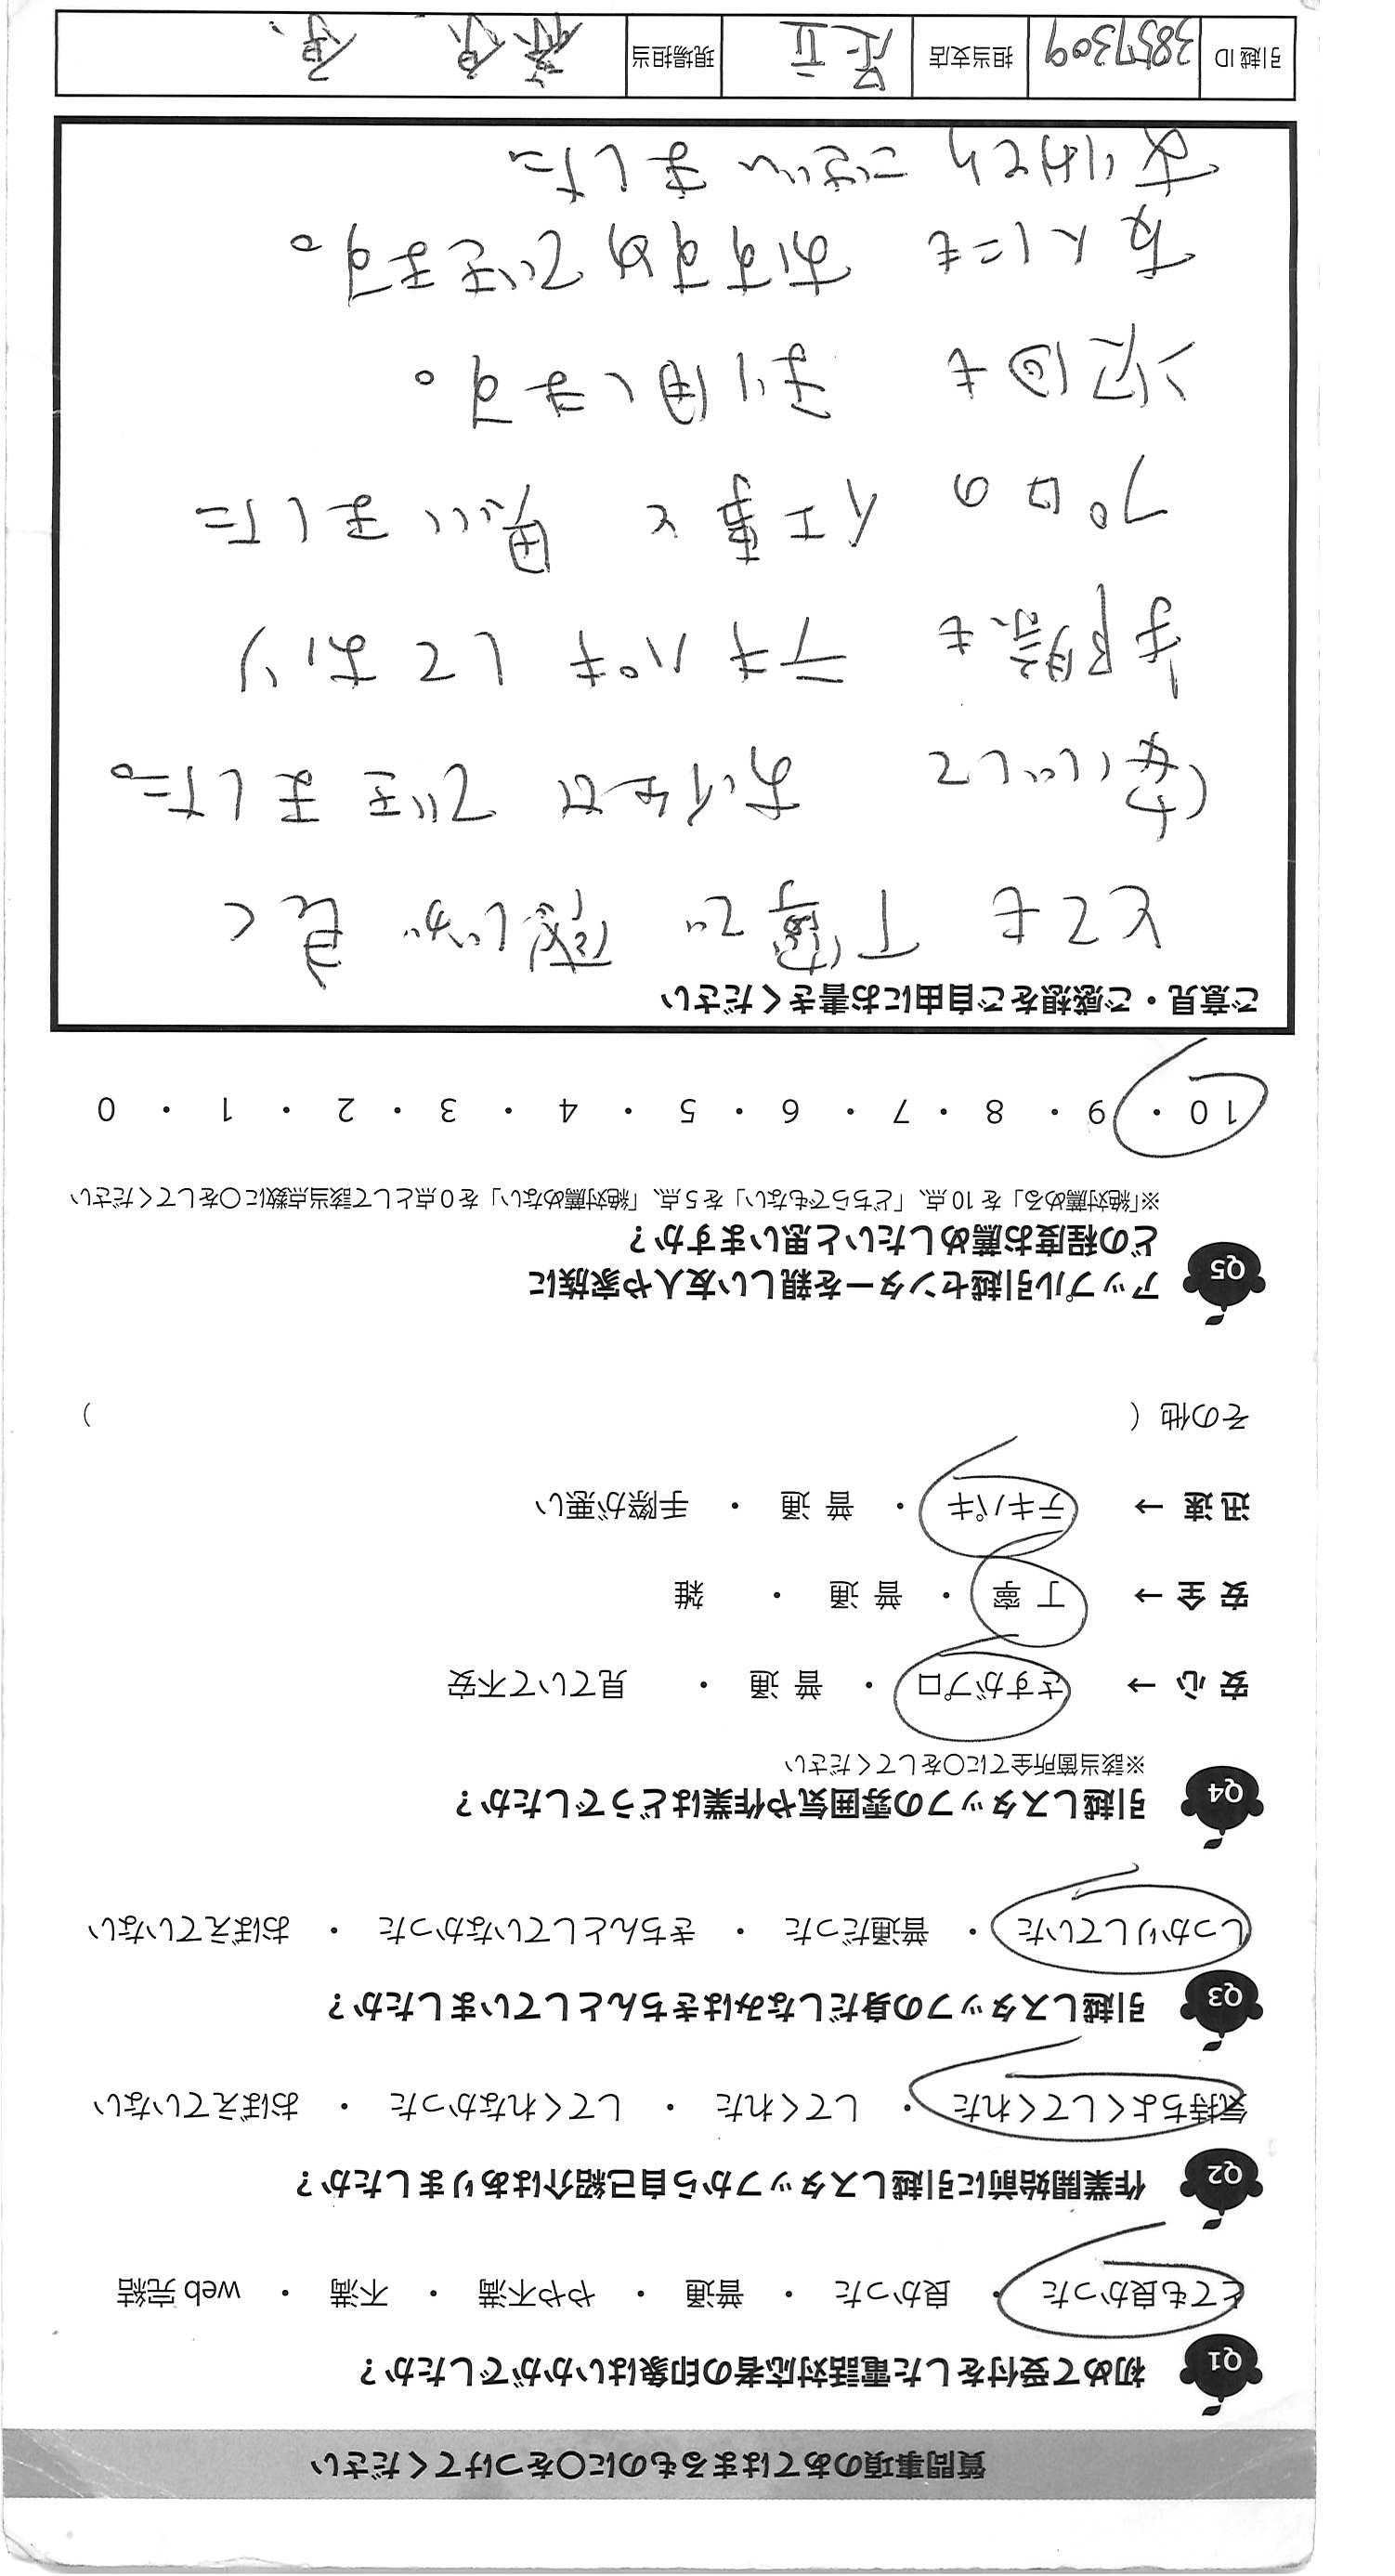 質問事項のあてはまるものに〇をつけてください
Q1 初めて受付をした電話対応者の印象はいかがでしたか？
とても良かった ・ 良かった ・ 普通 ・ やや不満 ・ 不満 ・ web 完結
Q2 作業開始前に引越しスタッフから自己紹介はありましたか？
気持ちよくしてくれた ・ してくれた ・ してくれなかった ・ おぼえていない
Q3 引越しスタッフの身だしなみはきちんとしていましたか？
しっかりしていた ・ 普通だった ・ きちんとしていなかった ・ おぼえていない
Q4 引越しスタッフの雰囲気や作業はどうでしたか？
※該当箇所全てに〇をしてください
安 心 → さすがプロ ・ 普 通 ・ 見ていて不安
安 全 → 丁 寧 ・ 普 通 ・ 雑
迅 速 → テキパキ ・ 普 通 ・ 手際が悪い
その他 ( )
Q5 アップル引越センターを親しい友人や家族に
どの程度お薦めしたいと思いますか？
※「絶対薦める」を 10 点、「どちらでもない」を 5 点、「絶対薦めない」を 0 点として該当点数に〇をしてください
10 ・ 9 ・ 8 ・ 7 ・ 6 ・ 5 ・ 4 ・ 3 ・ 2 ・ 1 ・ 0
ご意見・ご感想をご自由にお書きください
とても 丁寧で 感じが 良く
安心して お任せ できました。
手際も テキパキしており
プロの 仕事と 思いました
次回も 利用します。
友人にも おすすめできます。
ありがとうございました
引越 ID 3857309 担当支店 足立 現場担当